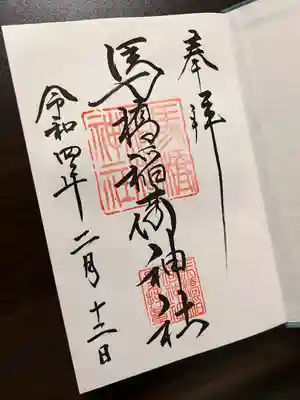 奉拝
馬橋稲荷神社
令和四年二月十二日